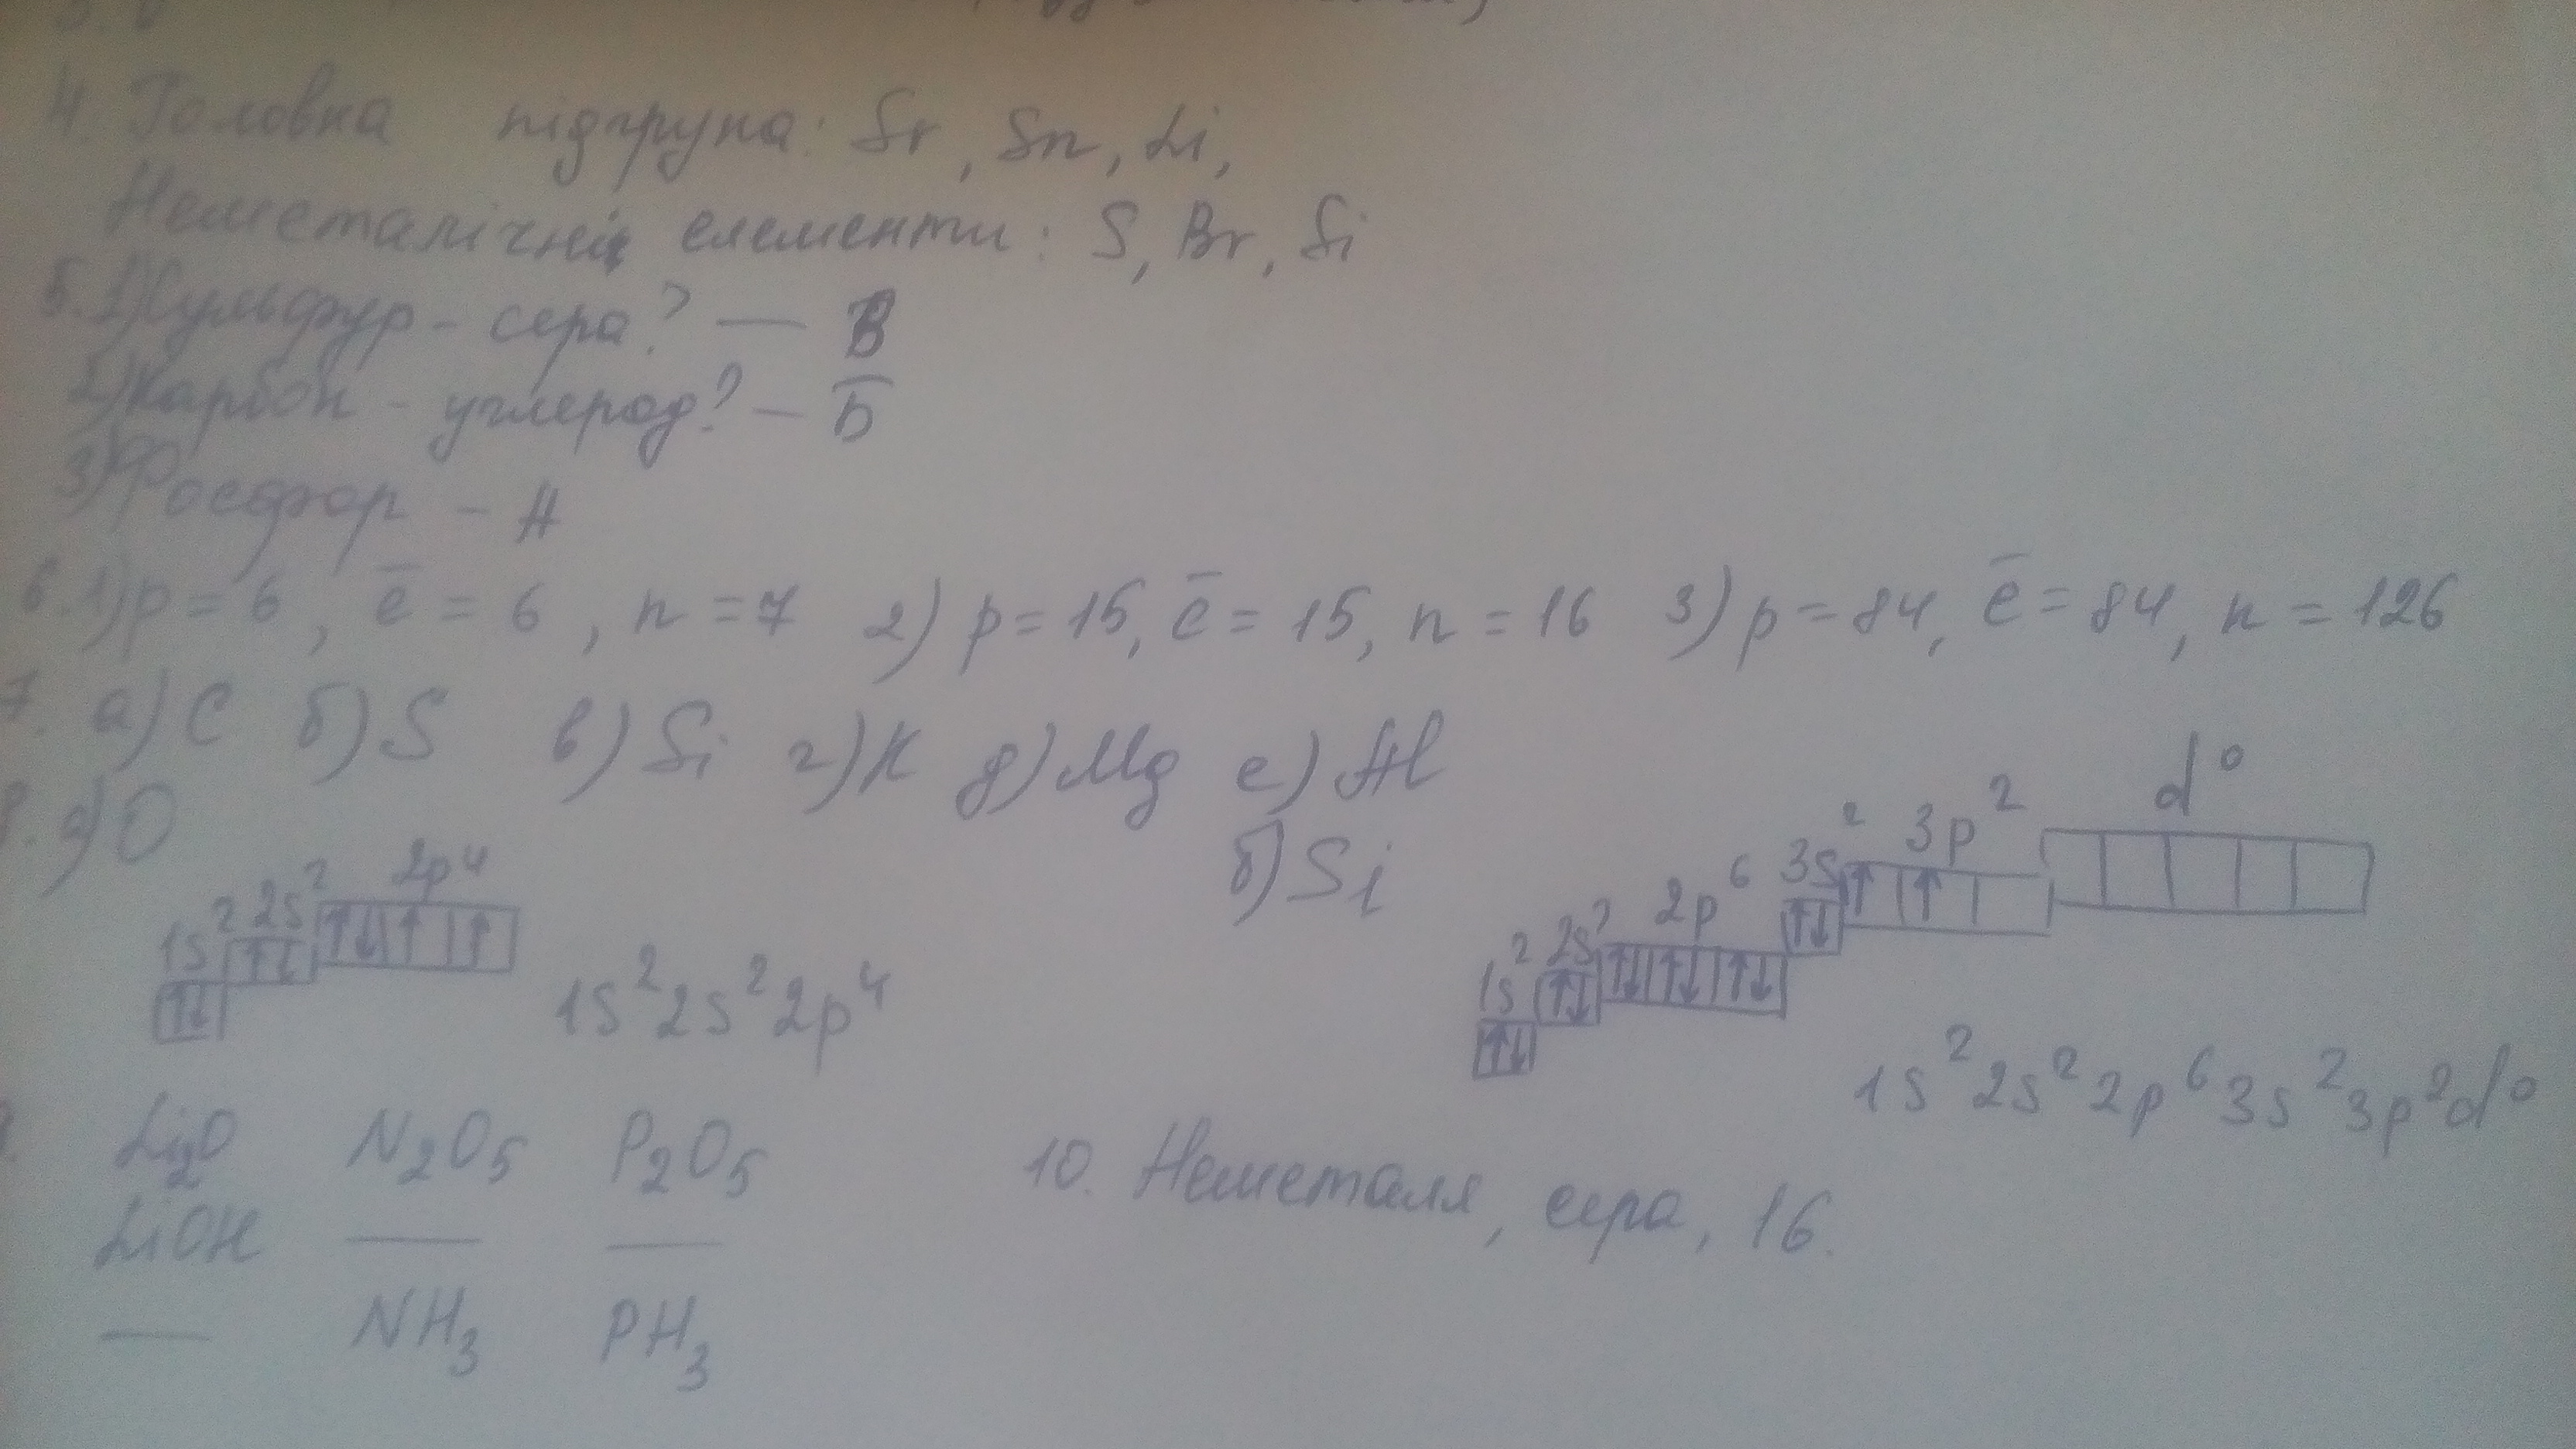 4. Головна підгрупа: Sr, Sn, Li,
Неметалічні елементи: S, Br, Si
5. 1) Сульфур - сера? — В
2) Карбон - углерод? — Б
3) Фосфор - А
6. 1) p = 6, e̅ = 6, n = 7 2) p = 15, e̅ = 15, n = 16 3) p = 84, e̅ = 84, n = 126
7. а) C б) S в) Si г) K д) Mg е) Al
8. а) O
1s² 2s² 2p⁴
1s²2s²2p⁴
б) Si
1s² 2s² 2p⁶ 3s² 3p² d⁰
1s²2s²2p⁶3s²3p²d⁰
9. Li₂O N₂O₅ P₂O₅
LiOH — —
— NH₃ PH₃
10. Неметалл, сера, 16.